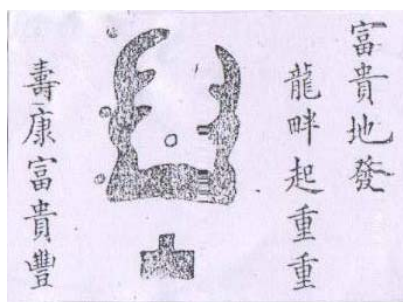 富貴地發
龍畔起重重
壽康富貴豐